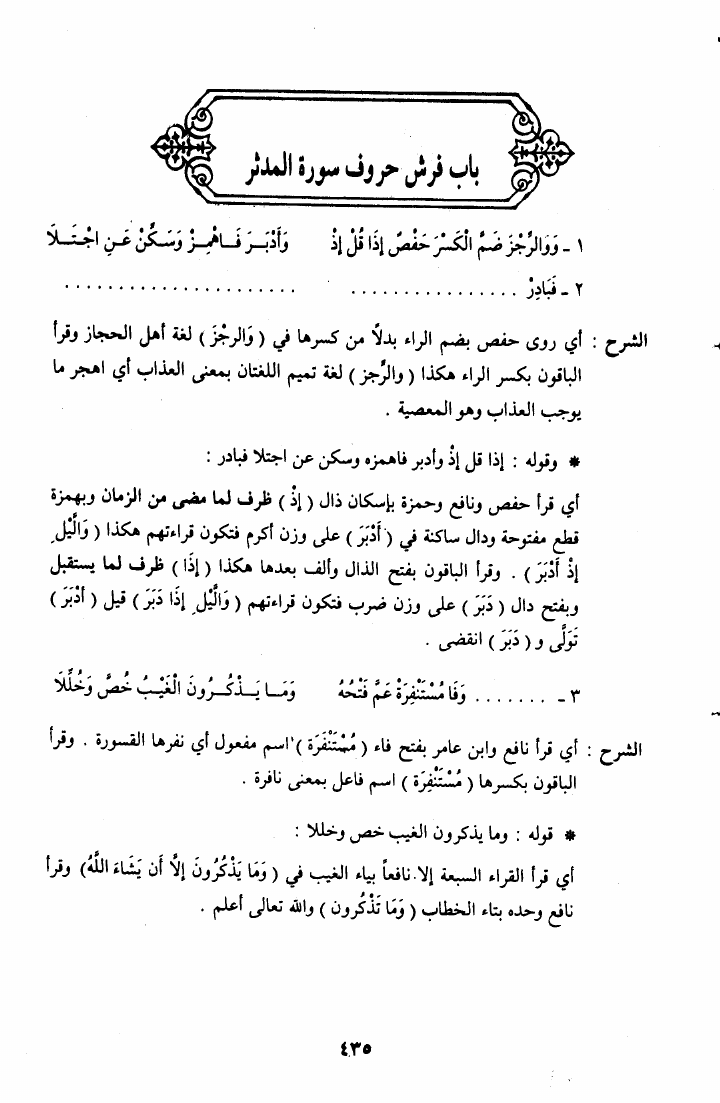 باب فرش حروف سورة المدثر
١ - وَوَالرُّجْزَ ضَمَّ الْكَسْرَ حَفْصٌ إِذَا قُلْ إِذْ وَأَدْبَـرَ فَـاهْمِـزْ وَسَكِّنْ عَـنِ اجْتَـلَا
٢ - فَبَادِرْ . . . . . . . . . . . . . . . . . . . . . . . . . . . . . . . . . . . . . .
الشرح : أي روى حفص بضم الراء بدلًا من كسرها في ( وَالرجْزَ ) لغة أهل الحجاز وقرأ
الباقون بكسر الراء هكذا ( والرِّجز ) لغة تميم اللغتان بمعنى العذاب أي اهجر ما
يوجب العذاب وهو المعصية .
* وقوله : إذا قل إذْ وأدبر فاهمزه وسكن عن اجتلا فبادر :
أي قرأ حفص ونافع وحمزة بإسكان ذال ( إذْ ) ظرف لما مضى من الزمان وبهمزة
قطع مفتوحة ودال ساكنة في ( أَدْبَرَ ) على وزن أكرم فتكون قراءتهم هكذا ( وَالَّيْلِ
إِذْ أَدْبَرَ ) . وقرأ الباقون بفتح الذال وألف بعدها هكذا ( إِذَا ) ظرف لما يستقبل
وبفتح دال ( دَبَرَ ) على وزن ضرب فتكون قراءتهم ( وَالَّيْلِ إِذَا دَبَرَ ) قيل ( أَدْبَرَ )
تَوَلَّى و ( دَبَرَ ) انقضى .
٣ - . . . . . . . وَفَا مُسْتَنْفِرَةْ عَمَّ فَتْحُهُ وَمَـا يَـذْكُـرُونَ الْغَيْبُ خُصَّ وَخُلِّلَا
الشرح : أي قرأ نافع وابن عامر بفتح فاء ( مُسْتَنْفَرَة ) اسم مفعول أي نفرها القسورة . وقرأ
الباقون بكسرها ( مُسْتَنْفِرَة ) اسم فاعل بمعنى نافرة .
* قوله : وما يذكرون الغيب خص وخللا :
أي قرأ القراء السبعة إلا نافعاً بياء الغيب في ( وَمَا يَذْكُرُونَ إلاَّ أَن يَشَاءَ اللَّهُ ) وقرأ
نافع وحده بتاء الخطاب ( وَمَا تَذْكُرون ) والله تعالى أعلم .
٤٣٥